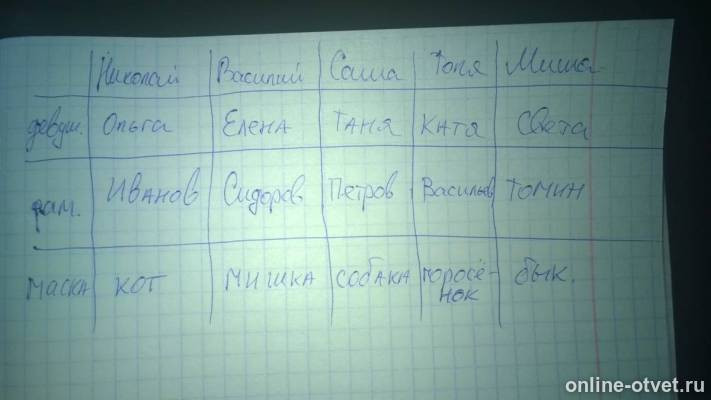 Николай Василий Саша Толя Миша
девуш. Ольга Елена Таня Катя Света
фам. Иванов Сидоров Петров Васильев Томин
маска кот мишка собака поросё-
нок бык.
online-otvet.ru